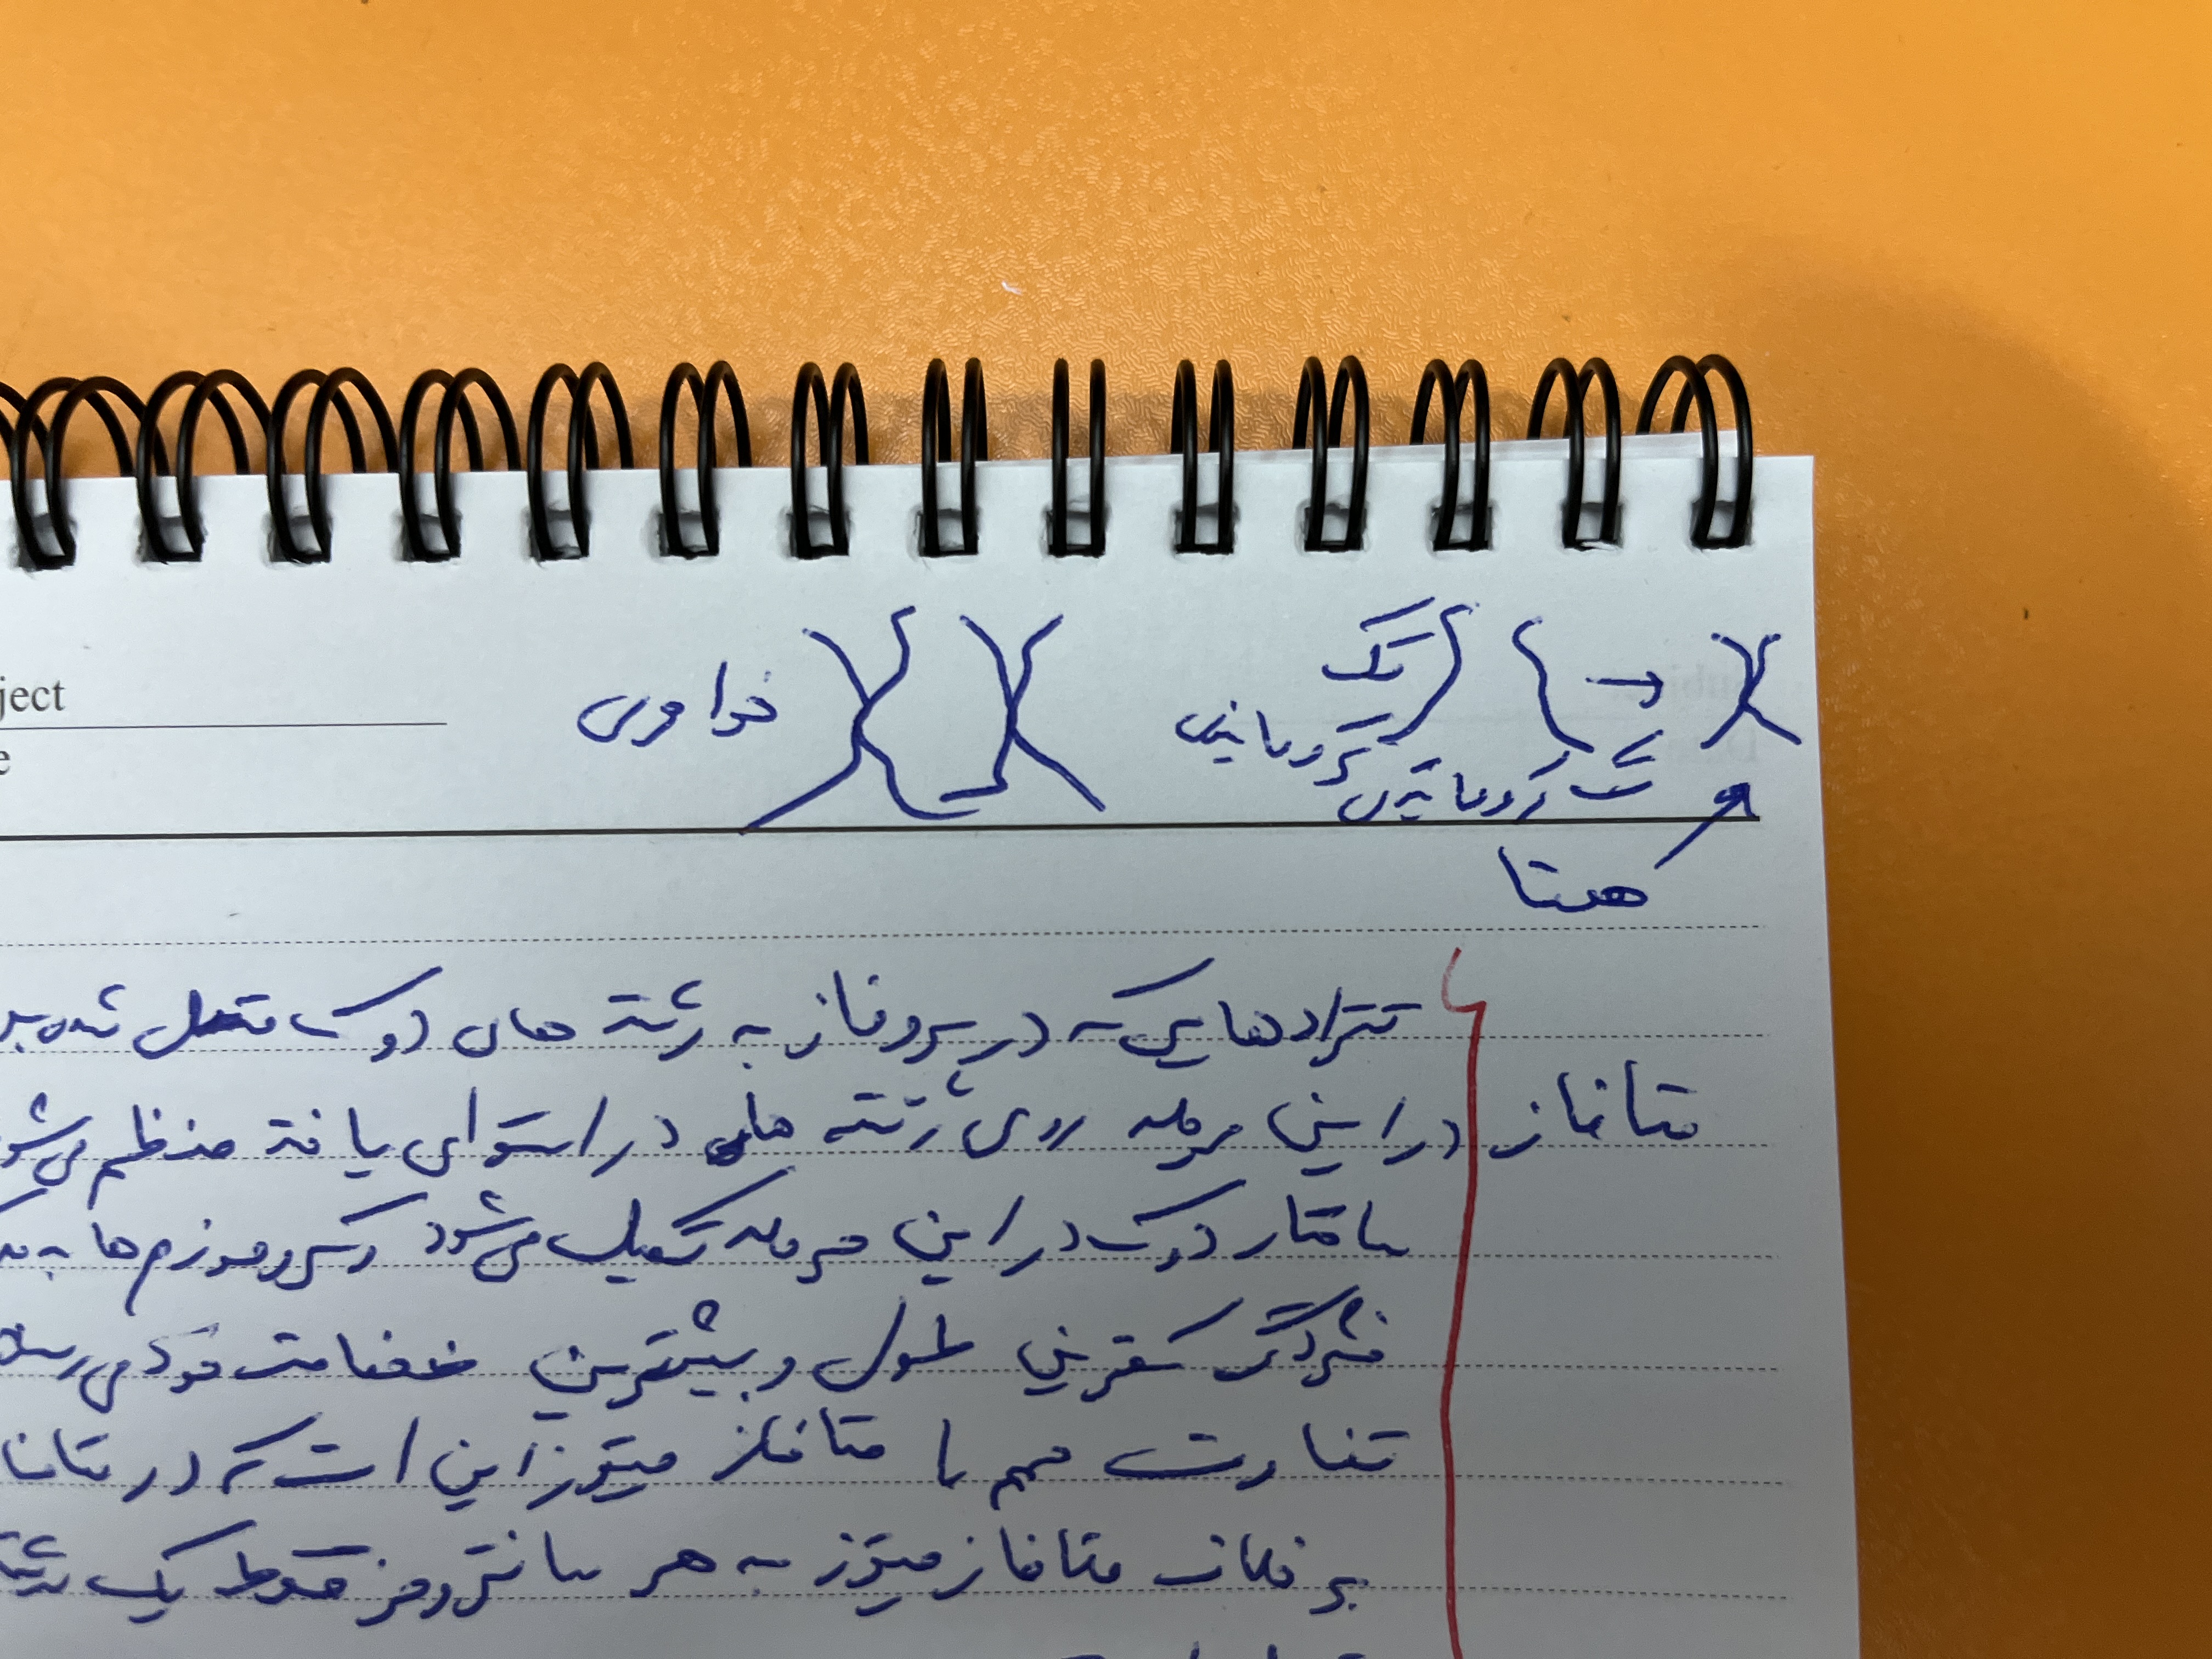 تک کروماتیدی
شت کروماتیدی
خواهری
همتا
ject
e
تترادهایی که در پروفاز به رشته های دوک متصل شده
متافاز در این مرحله روی رشته های در استوای یافته منظم می‌شو
ساختار دوک در این مرحله تشکیل می‌شود و کروموزوم ها به
فشردگی کمترین طول و بیشترین ضخامت خود می رسند
تفاوت مهم با متافاز میتوز این است که در متافا
بر خلاف متافاز میتوز به هر سانترومر فقط یک رشته